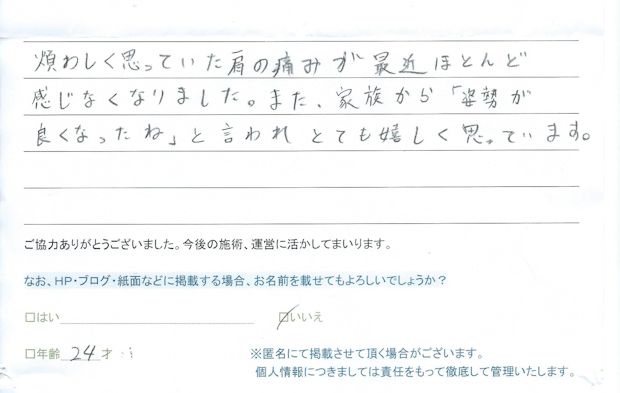 煩わしく思っていた肩の痛みが最近ほとんど
感じなくなりました。また、家族から「姿勢が
良くなったね」と言われとても嬉しく思っています。
ご協力ありがとうございました。今後の施術、運営に活かしてまいります。
なお、HP・ブログ・紙面などに掲載する場合、お名前を載せてもよろしいでしょうか？
□はい ☑いいえ
□年齢 24 才 ※匿名にて掲載させて頂く場合がございます。
個人情報につきましては責任をもって徹底して管理いたします。